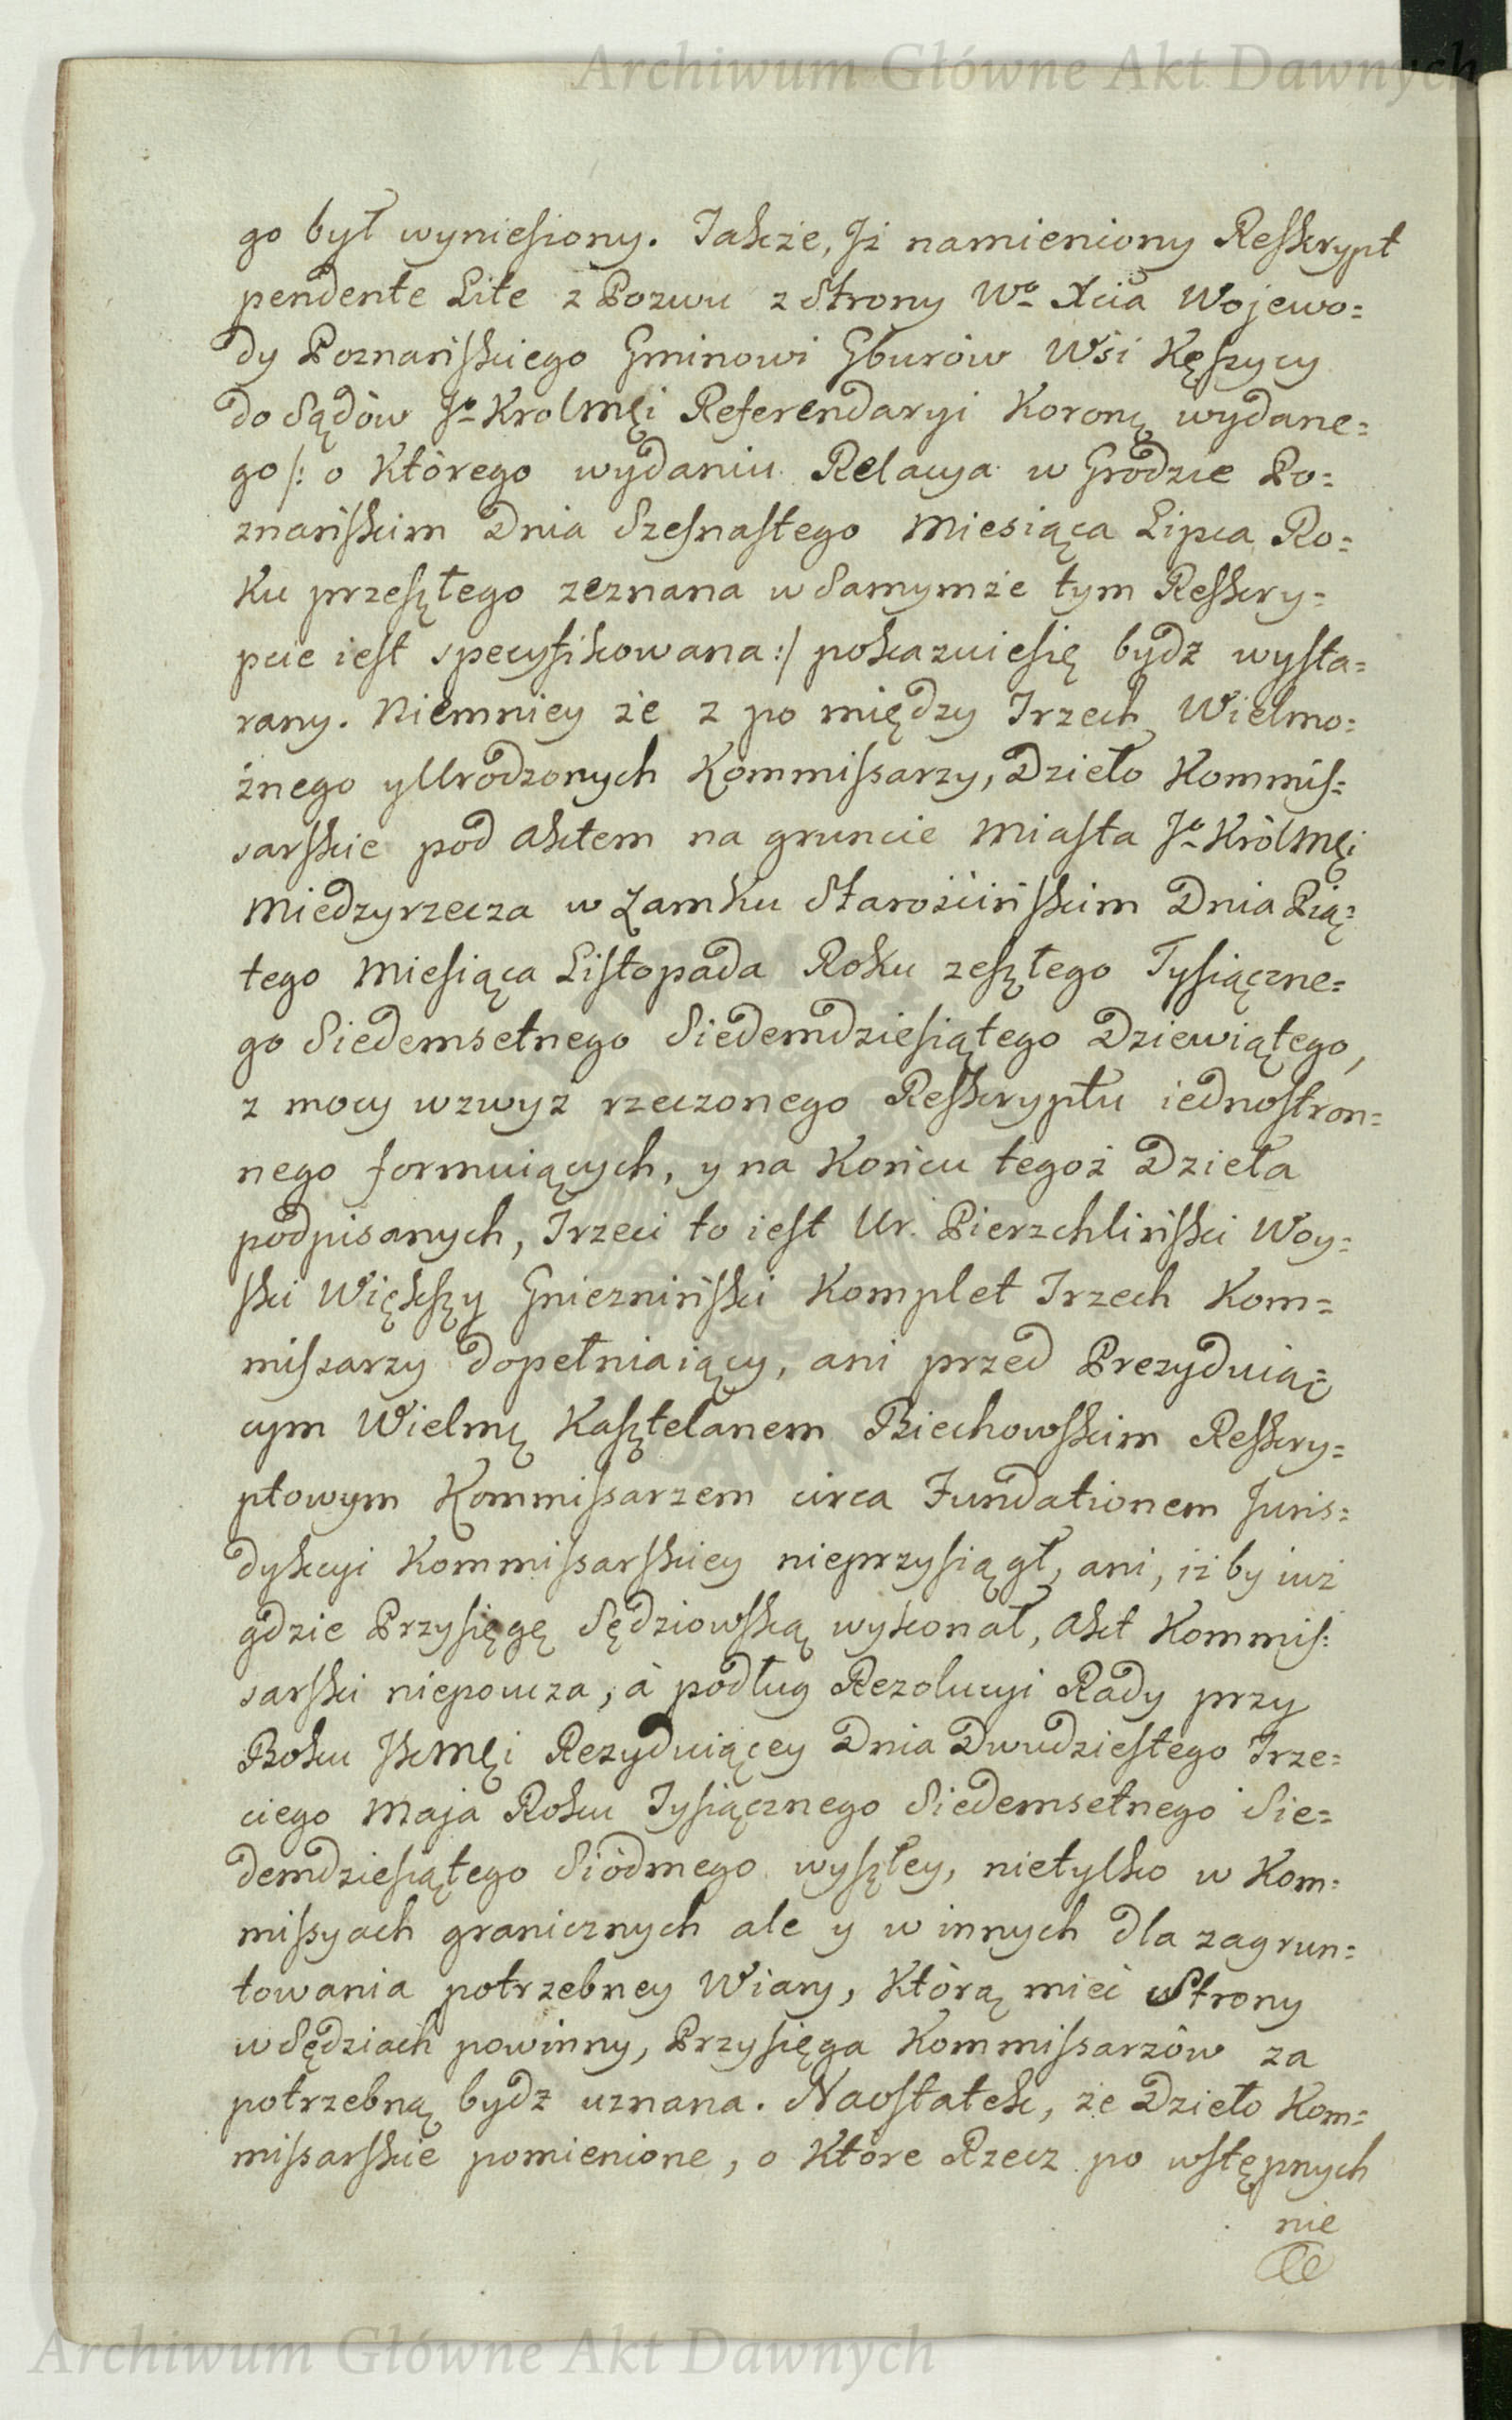 Archiwum Główne Akt Dawnych
go był wyniesiony. Takze, Jż namieniony Reskrypt
pendente Lite z Pozwu z Strony Wº Xcia Wojewo=
dy Poznańskiego Gminowi Gburów Wsi Kęszycy
do Sądów Jº KrolMęi Referendaryi Koronę wydane=
go /: o którego wydaniu Relacya w Grodzie Po=
znańskim Dnia Szesnastego Miesiąca Lipca Ro=
ku przeszłego zeznana w Samymże tym Reskry=
pcie iest specyfikowana :/ pokazuiesię bydź wysta=
rany. Niemniey że z po między Trzech Wielmo=
żnego y Urodzonych Kommissarzy, Dzieło Kommis=
sarskie pod Aktem na gruncie Miasta Jº KrólMęi
Miedzyrzecza w Zamku Starościńskim Dnia Pią=
tego Miesiąca Listopada Roku zeszłego Tysiączne=
go Siedemsetnego Siedemdziesiątego Dziewiątego,
z mocy wzwyż rzeczonego Reskryptu iednostron=
nego formuiących, y na Końcu tegoż Dzieła
podpisanych, Trzeci to iest Ur. Pierzchliński Woy=
ski Większy Gniezniński Komplet Trzech Kom=
missarzy dopełniaiący, ani przed Prezyduiąc=
cym Wielmę Kasztelanem Biechowskim Reskry=
ptowym Kommissarzem circa Fundationem Juris=
dykcyi Kommissarskiey nieprzysiągł, ani, iż by iuż
gdzie Przysięgę Sędziowską wykonał, Akt Kommis=
sarski niepoucza, à podług Rezolucyi Rady przy
Boku JkMęi Rezyduiącey Dnia Dwudziestego Trze=
ciego Maja Roku Tysiącznego Siedemsetnego Sie=
demdziesiątego Siódmego wyszłey, nietylko w Kom=
missyach granicznych ale y w innych dla zagrun=
towania potrzebney Wiary, którą mieć Strony
w Sędziach powinny, Przysięga Kommissarzów za
potrzebną bydź uznana. Naostatek, że Dzieło Kom=
missarskie pomienione, o które Rzecz po wstępnych
nie
Archiwum Główne Akt Dawnych